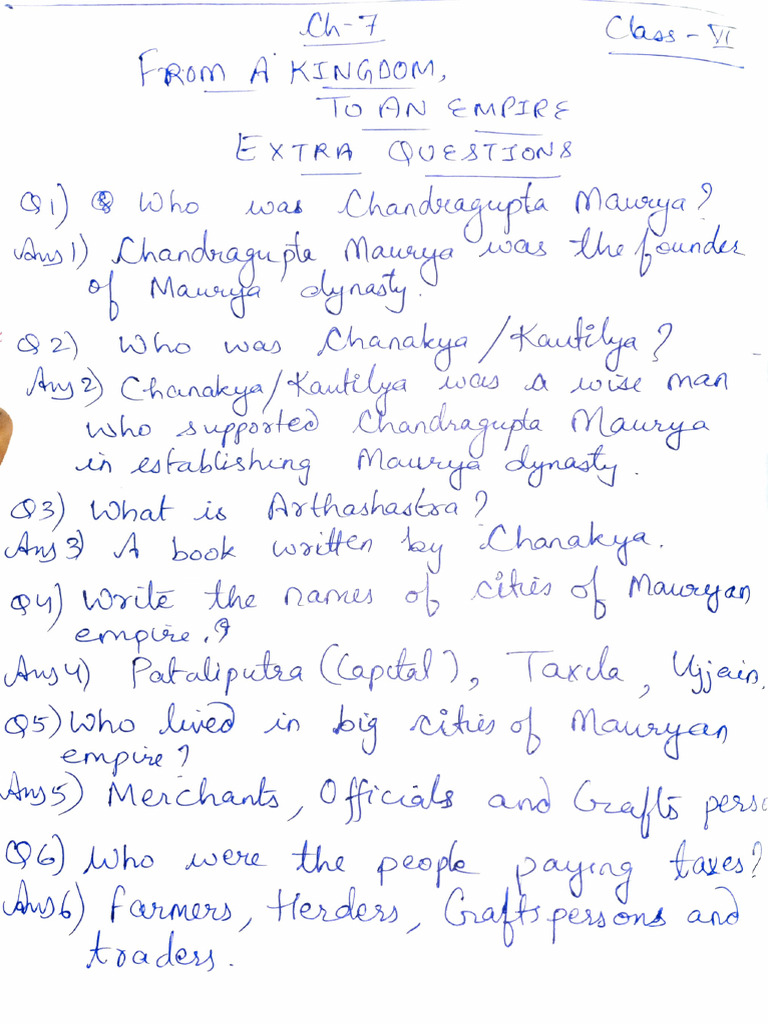 Ch-7
Class - VI
FROM A KINGDOM,
TO AN EMPIRE
EXTRA QUESTIONS
Q1) Who was Chandragupta Maurya?
Ans1) Chandragupta Maurya was the founder
of Maurya dynasty.
Q2) Who was Chanakya/Kautilya?
Ans2) Chanakya/Kautilya was a wise man
who supported Chandragupta Maurya
in establishing Maurya dynasty.
Q3) What is Arthashastra?
Ans3) A book written by Chanakya.
Q4) Write the names of cities of Mauryan
empire.?
Ans4) Pataliputra (Capital), Taxila, Ujjain.
Q5) Who lived in big cities of Mauryan
empire?
Ans5) Merchants, Officials and Crafts perso
Q6) Who were the people paying taxes?
Ans6) Farmers, Herders, Craftspersons and
traders.